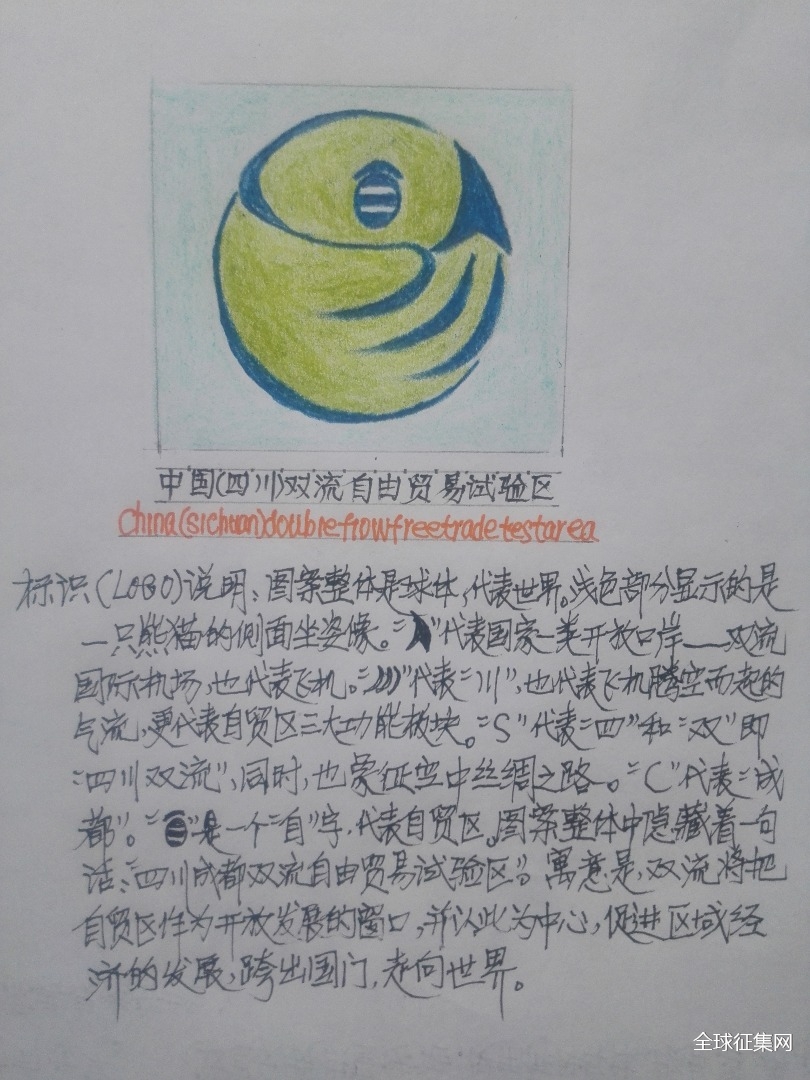 中国(四川)双流自由贸易试验区
China(sichuan)doubre-frowfreetradetestarea
标识(LOGO)说明:图案整体是球体,代表世界。浅色部分显示的是
一只熊猫的侧面坐姿像。“ ”代表国家一类开放口岸——双流
国际机场,也代表飞机。“)))”代表“川”,也代表飞机腾空而起的
气流,更代表自贸区三大功能板块。“S”代表“四”和“双”即
“四川双流”,同时,也象征空中丝绸之路。“C”代表“成
都”。“ ”是一个“自”字,代表自贸区。图案整体中隐藏着一句
话:“四川成都双流自由贸易试验区”。寓意是,双流将把
自贸区作为开放发展的窗口,并以此为中心,促进区域经
济的发展,跨出国门,走向世界。
全球征集网